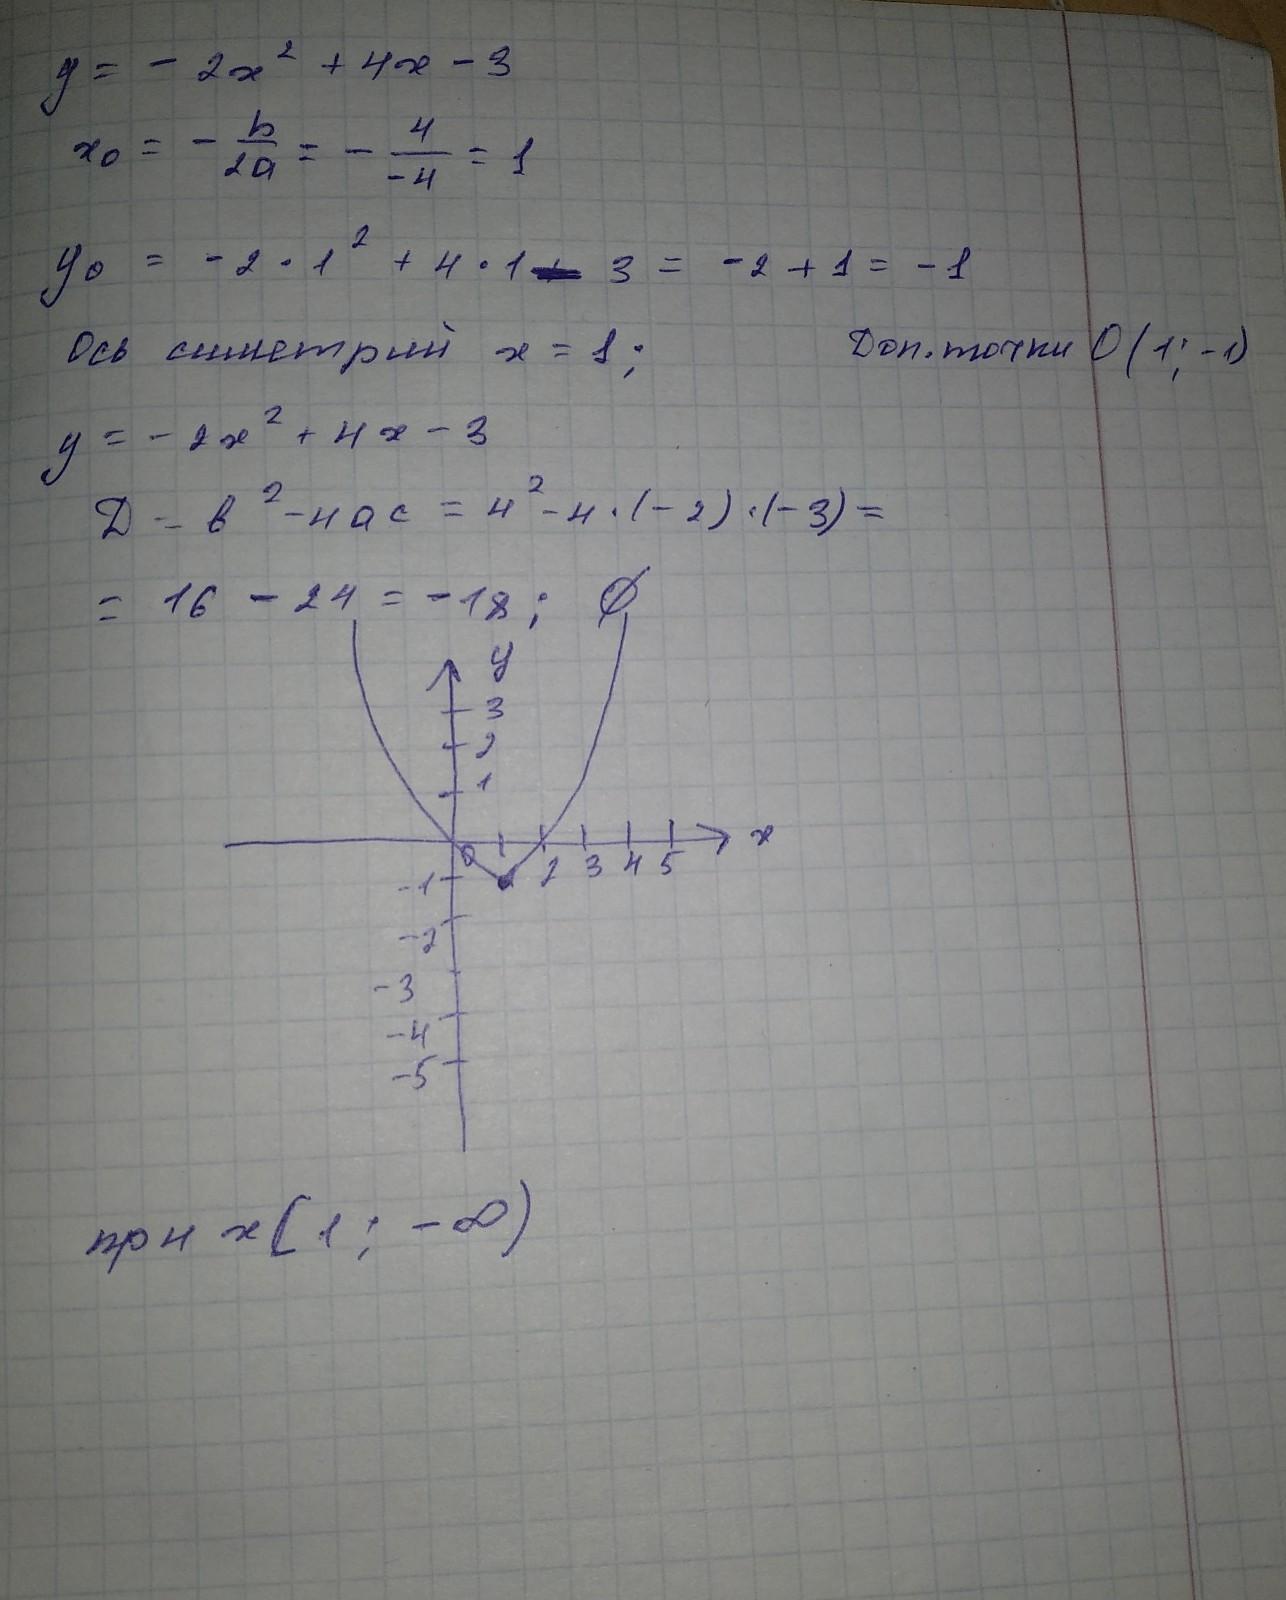 y = - 2x² + 4x - 3
x₀ = - b/2a = - 4/-4 = 1
y₀ = -2 · 1² + 4 · 1 - 3 = -2 + 1 = -1
Ось симетрий x = 1; Доп. точки O (1; -1)
y = - 2x² + 4x - 3
D = b² - 4ac = 4² - 4 · (-2) · (-3) =
= 16 - 24 = -18; ∅
y
3
2
1
0 2 3 4 5 x
-1
-2
-3
-4
-5
при x [1; -∞)